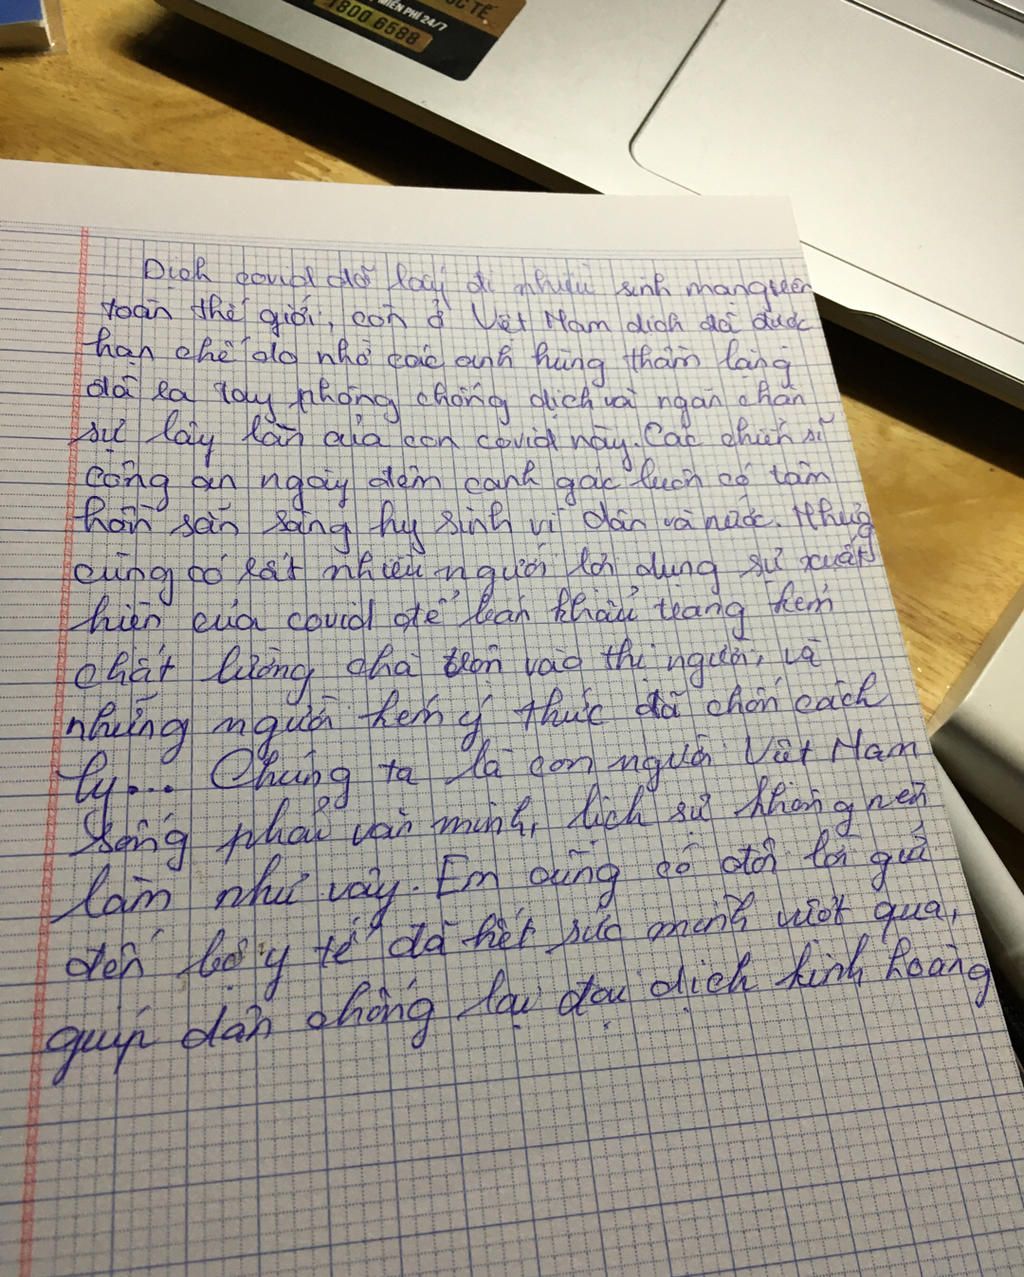 ỐC TẾ
MIỄN PHÍ 24/7
1800 6588
Dịch covid đã lấy đi nhiều sinh mạng trên
toàn thế giới, còn ở Việt Nam dịch đã được
hạn chế do nhờ các anh hùng thầm lặng
đã ra tay phòng chống dịch và ngăn chặn
sự lây lan của con covid này. Các chiến sĩ
công an ngày đêm canh gác luôn có tâm
hồn sẵn sàng hy sinh vì dân và nước. Nhưng
cũng có rất nhiều người lợi dụng sự xuất
hiện của covid để bán khẩu trang kém
chất lượng chà trộn vào thị người, và
những người kém ý thức đã chốn cách
ly... Chúng ta là con người Việt Nam
sống phải văn minh, lịch sự không nên
làm như vậy. Em cũng có đôi lời gửi
đến bộ y tế đã hết sức mình vượt qua,
giúp dân chống lại đại dịch kinh hoàng